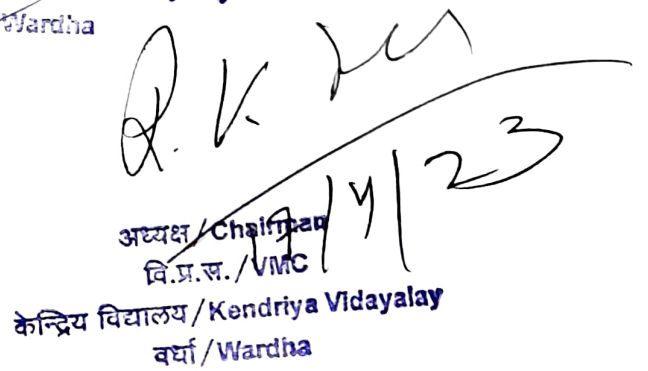 Wardha
R. K.
17/4/23
अध्यक्ष/Chairman
वि.प्र.स./VMC
केन्द्रिय विद्यालय/Kendriya Vidayalay
वर्धा/Wardha